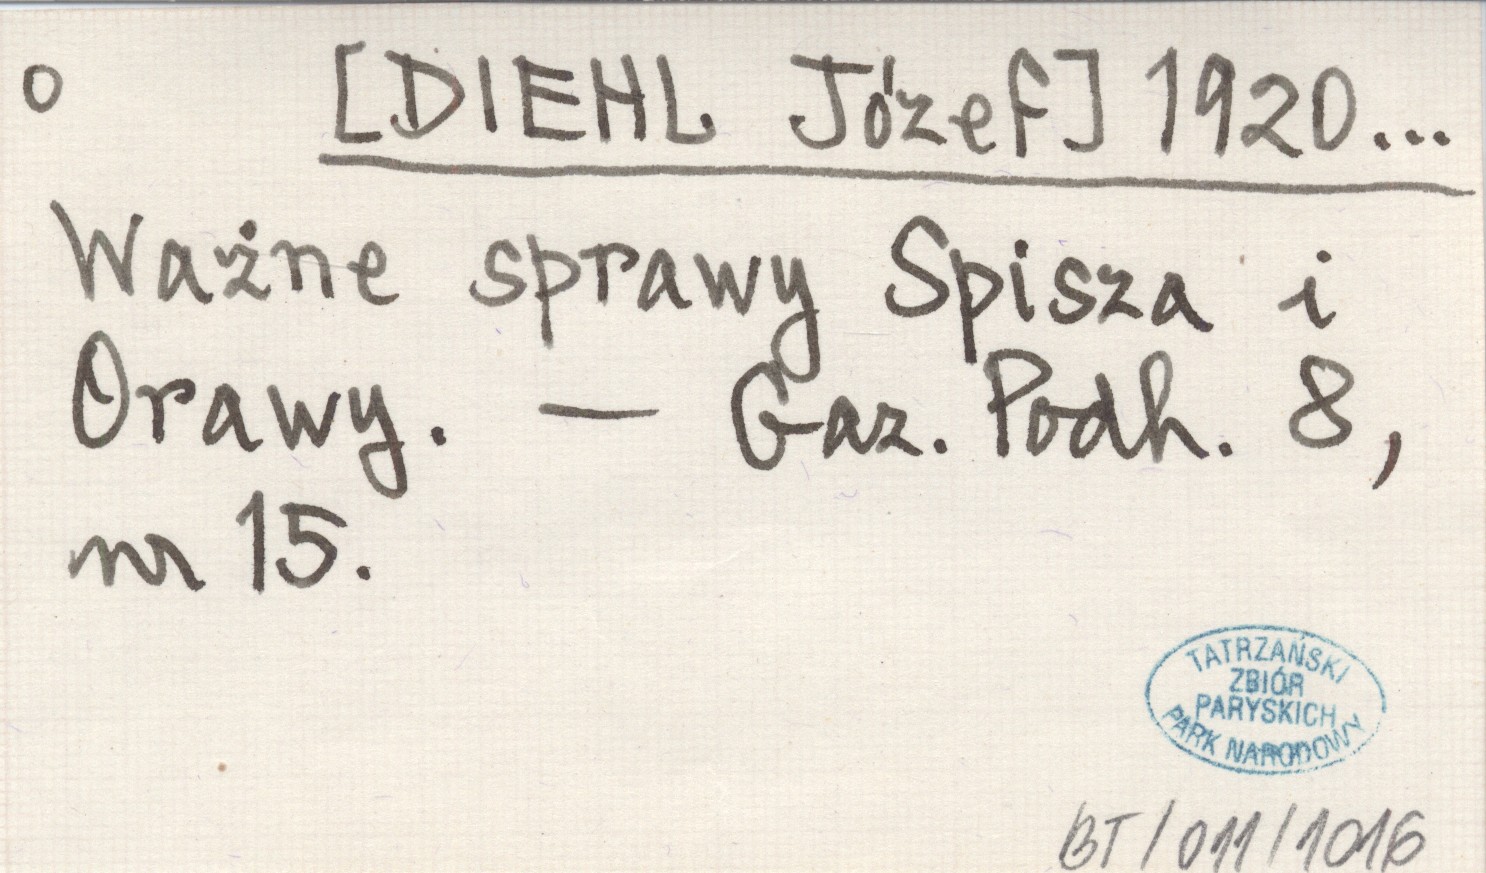 o [DIEHL Józef] 1920...
Ważne sprawy Spisza i
Orawy. — Gaz. Podh. 8,
nr 15.
TATRZAŃSKI
ZBIÓR
PARYSKICH
PARK NARODOWY
BT/011/1016